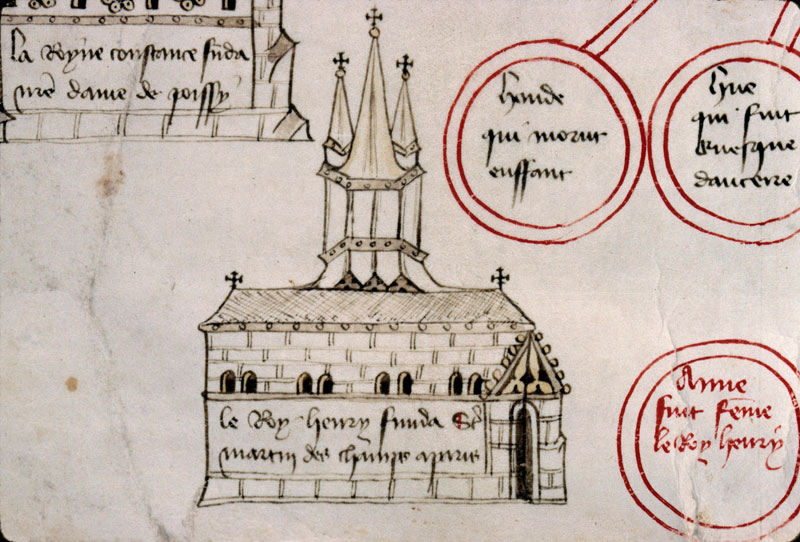 la Royne constance funda
nr̄e dame de poissy
haude
qui morut
enffant
hue
qui fuit
euesque
daucerre
le Roy henry funda St
martin des champs a paris
Anne
fuit fēme
le Roy henry